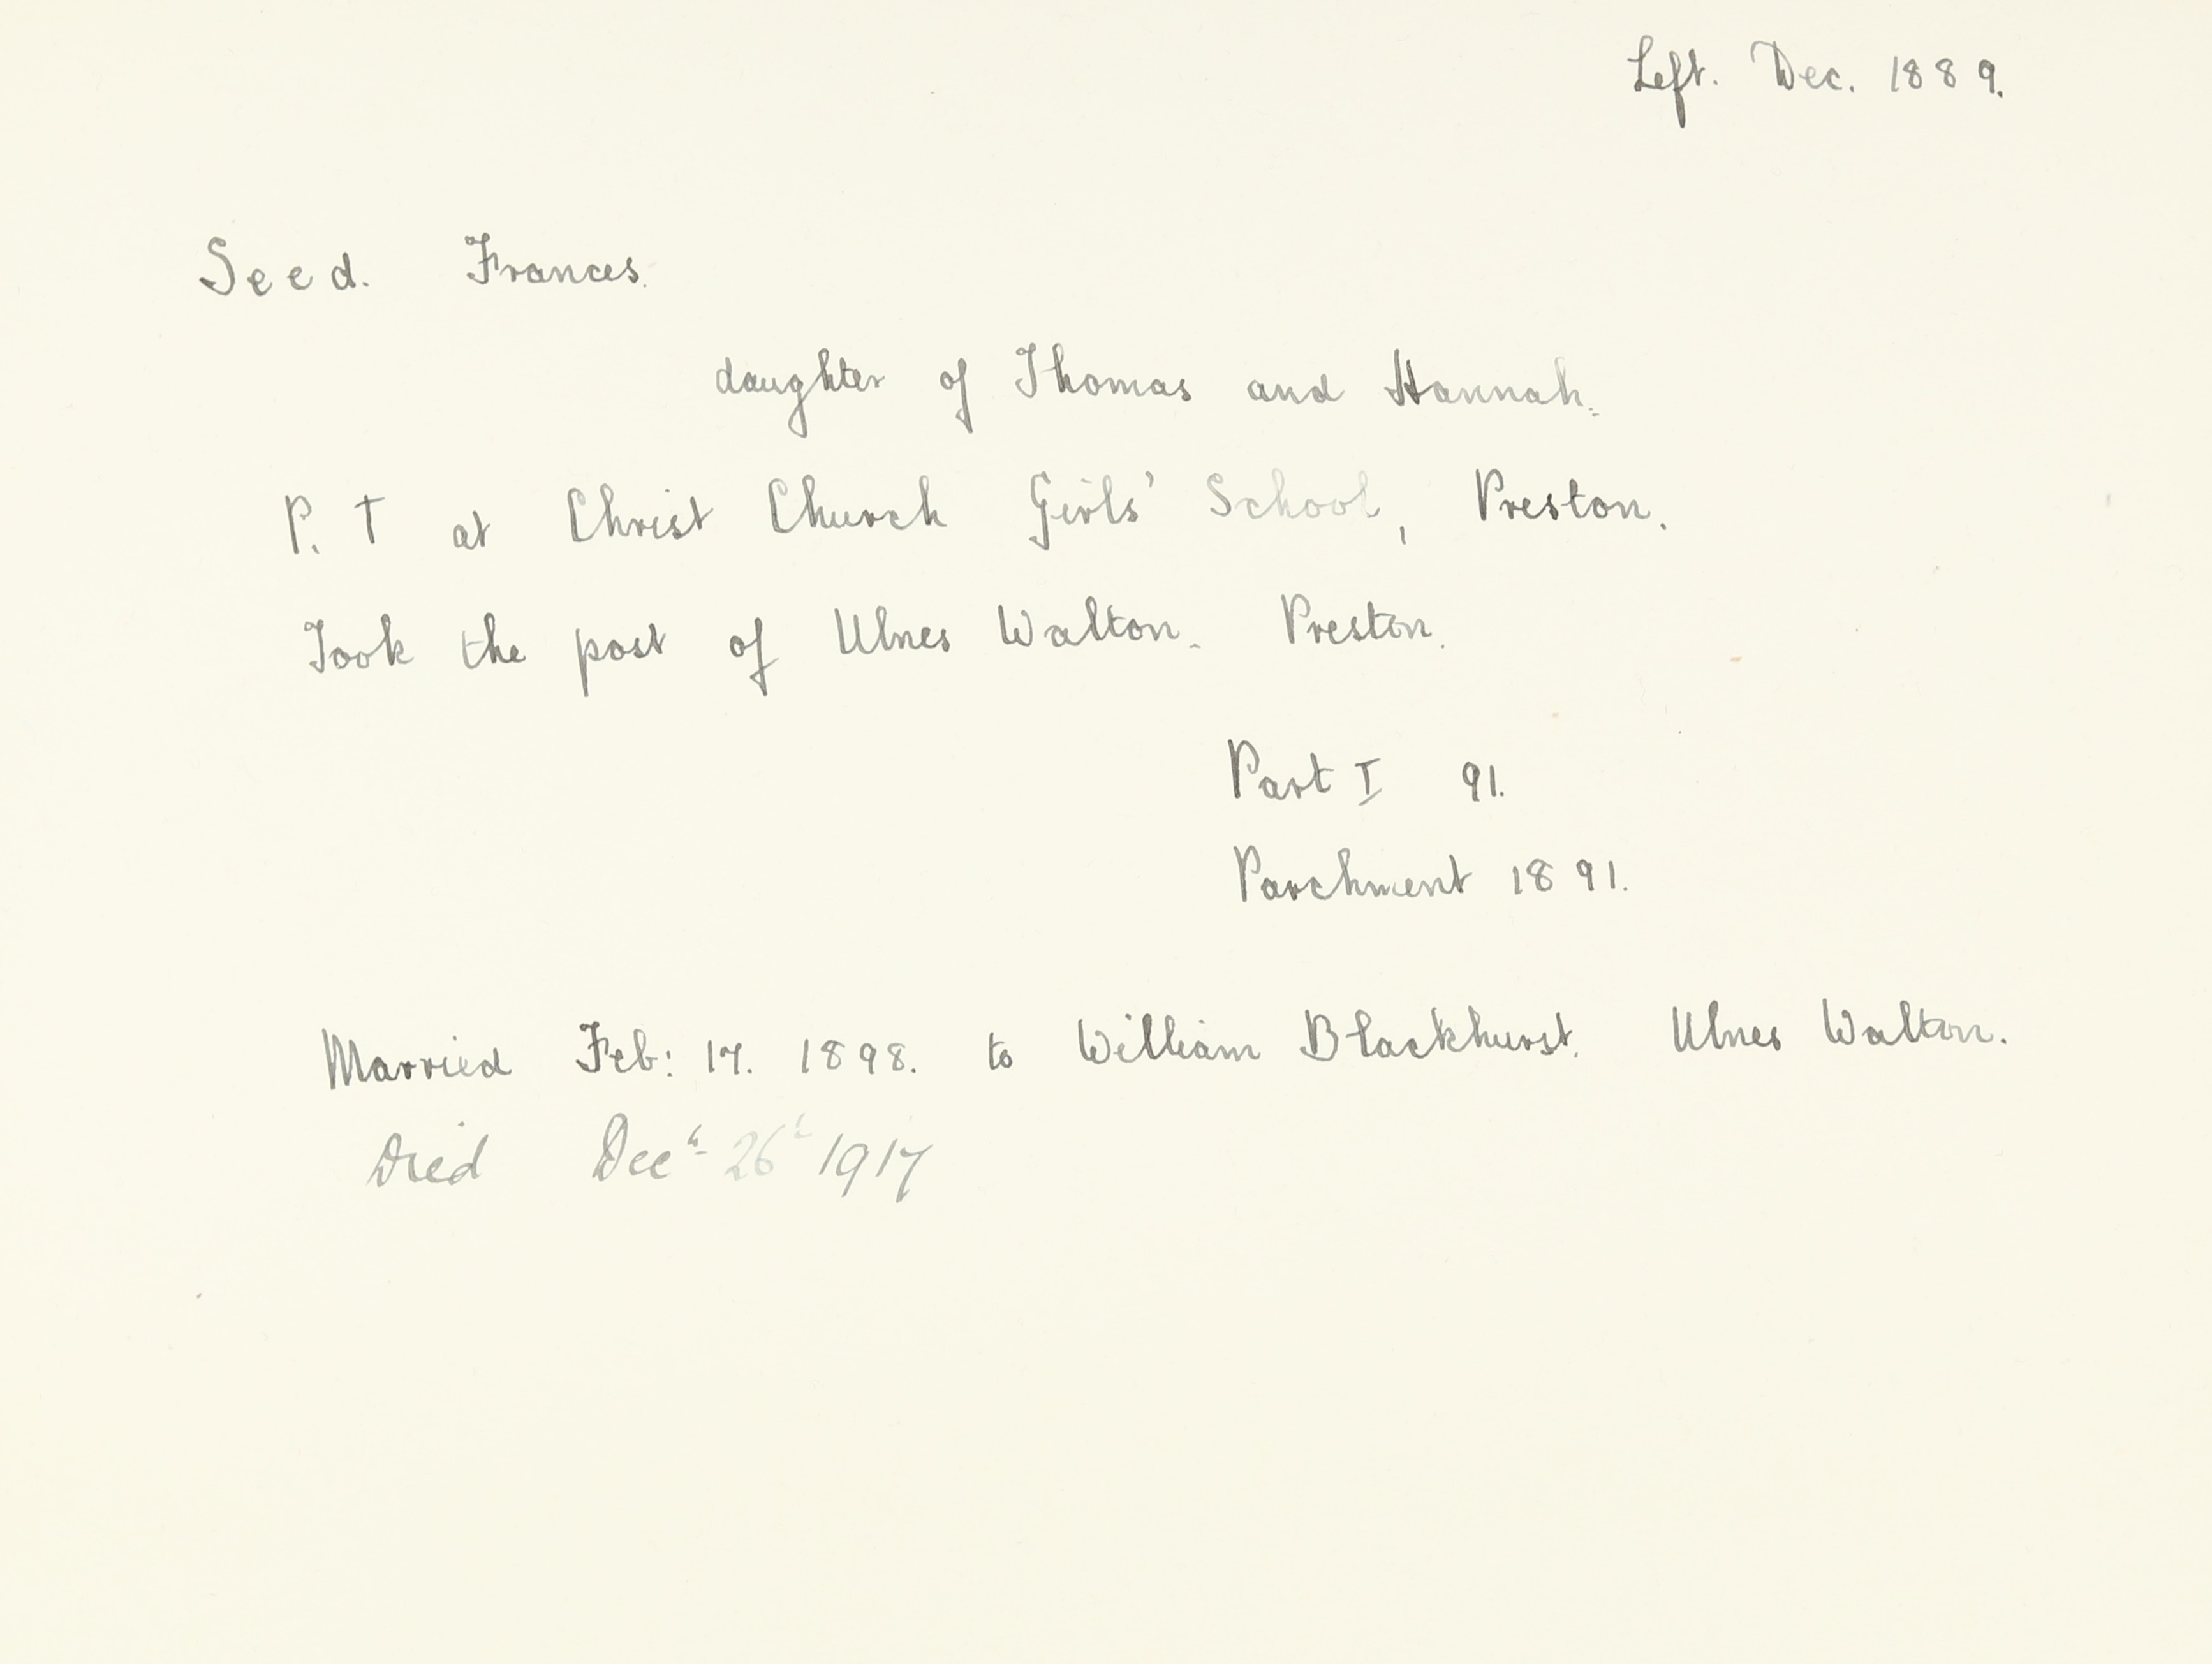 Left. Dec. 1889.
Seed. Frances.
daughter of Thomas and Hannah.
P. T at Christ Church Girls' School, Preston.
Took the post of Ulnes Walton. Preston.
Part I 91.
Parchment 1891.
Married Feb: 17. 1898. to William Blackhurst. Ulnes Walton.
Died Decr 26t 1917